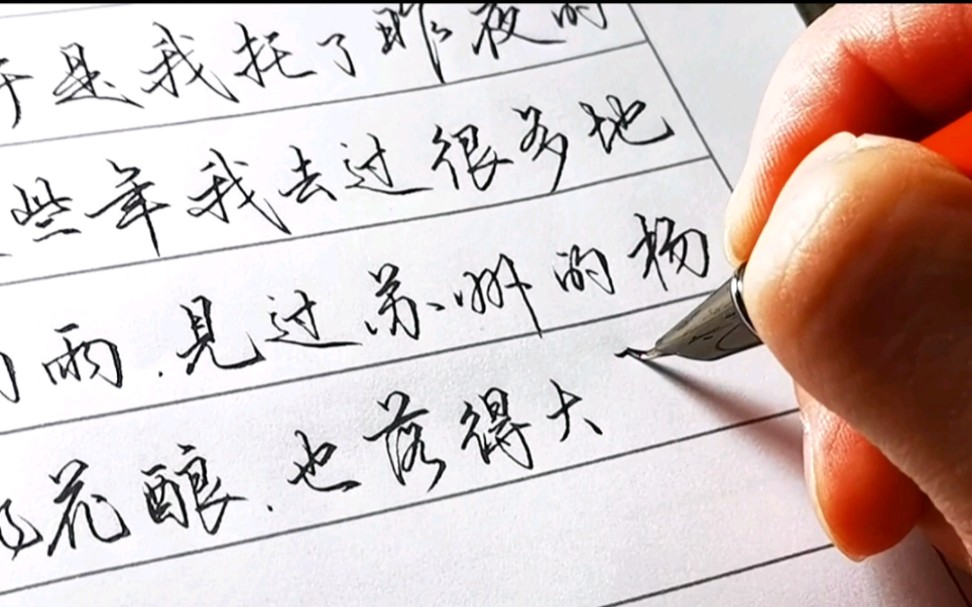 于是我托了昨夜的
些年我去过很多地
雨.见过苏州的杨
花酿.也落得大